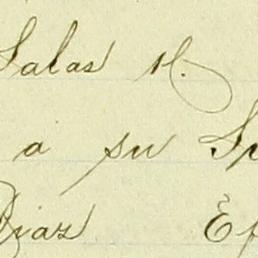 Salas M.
a su
Diaz